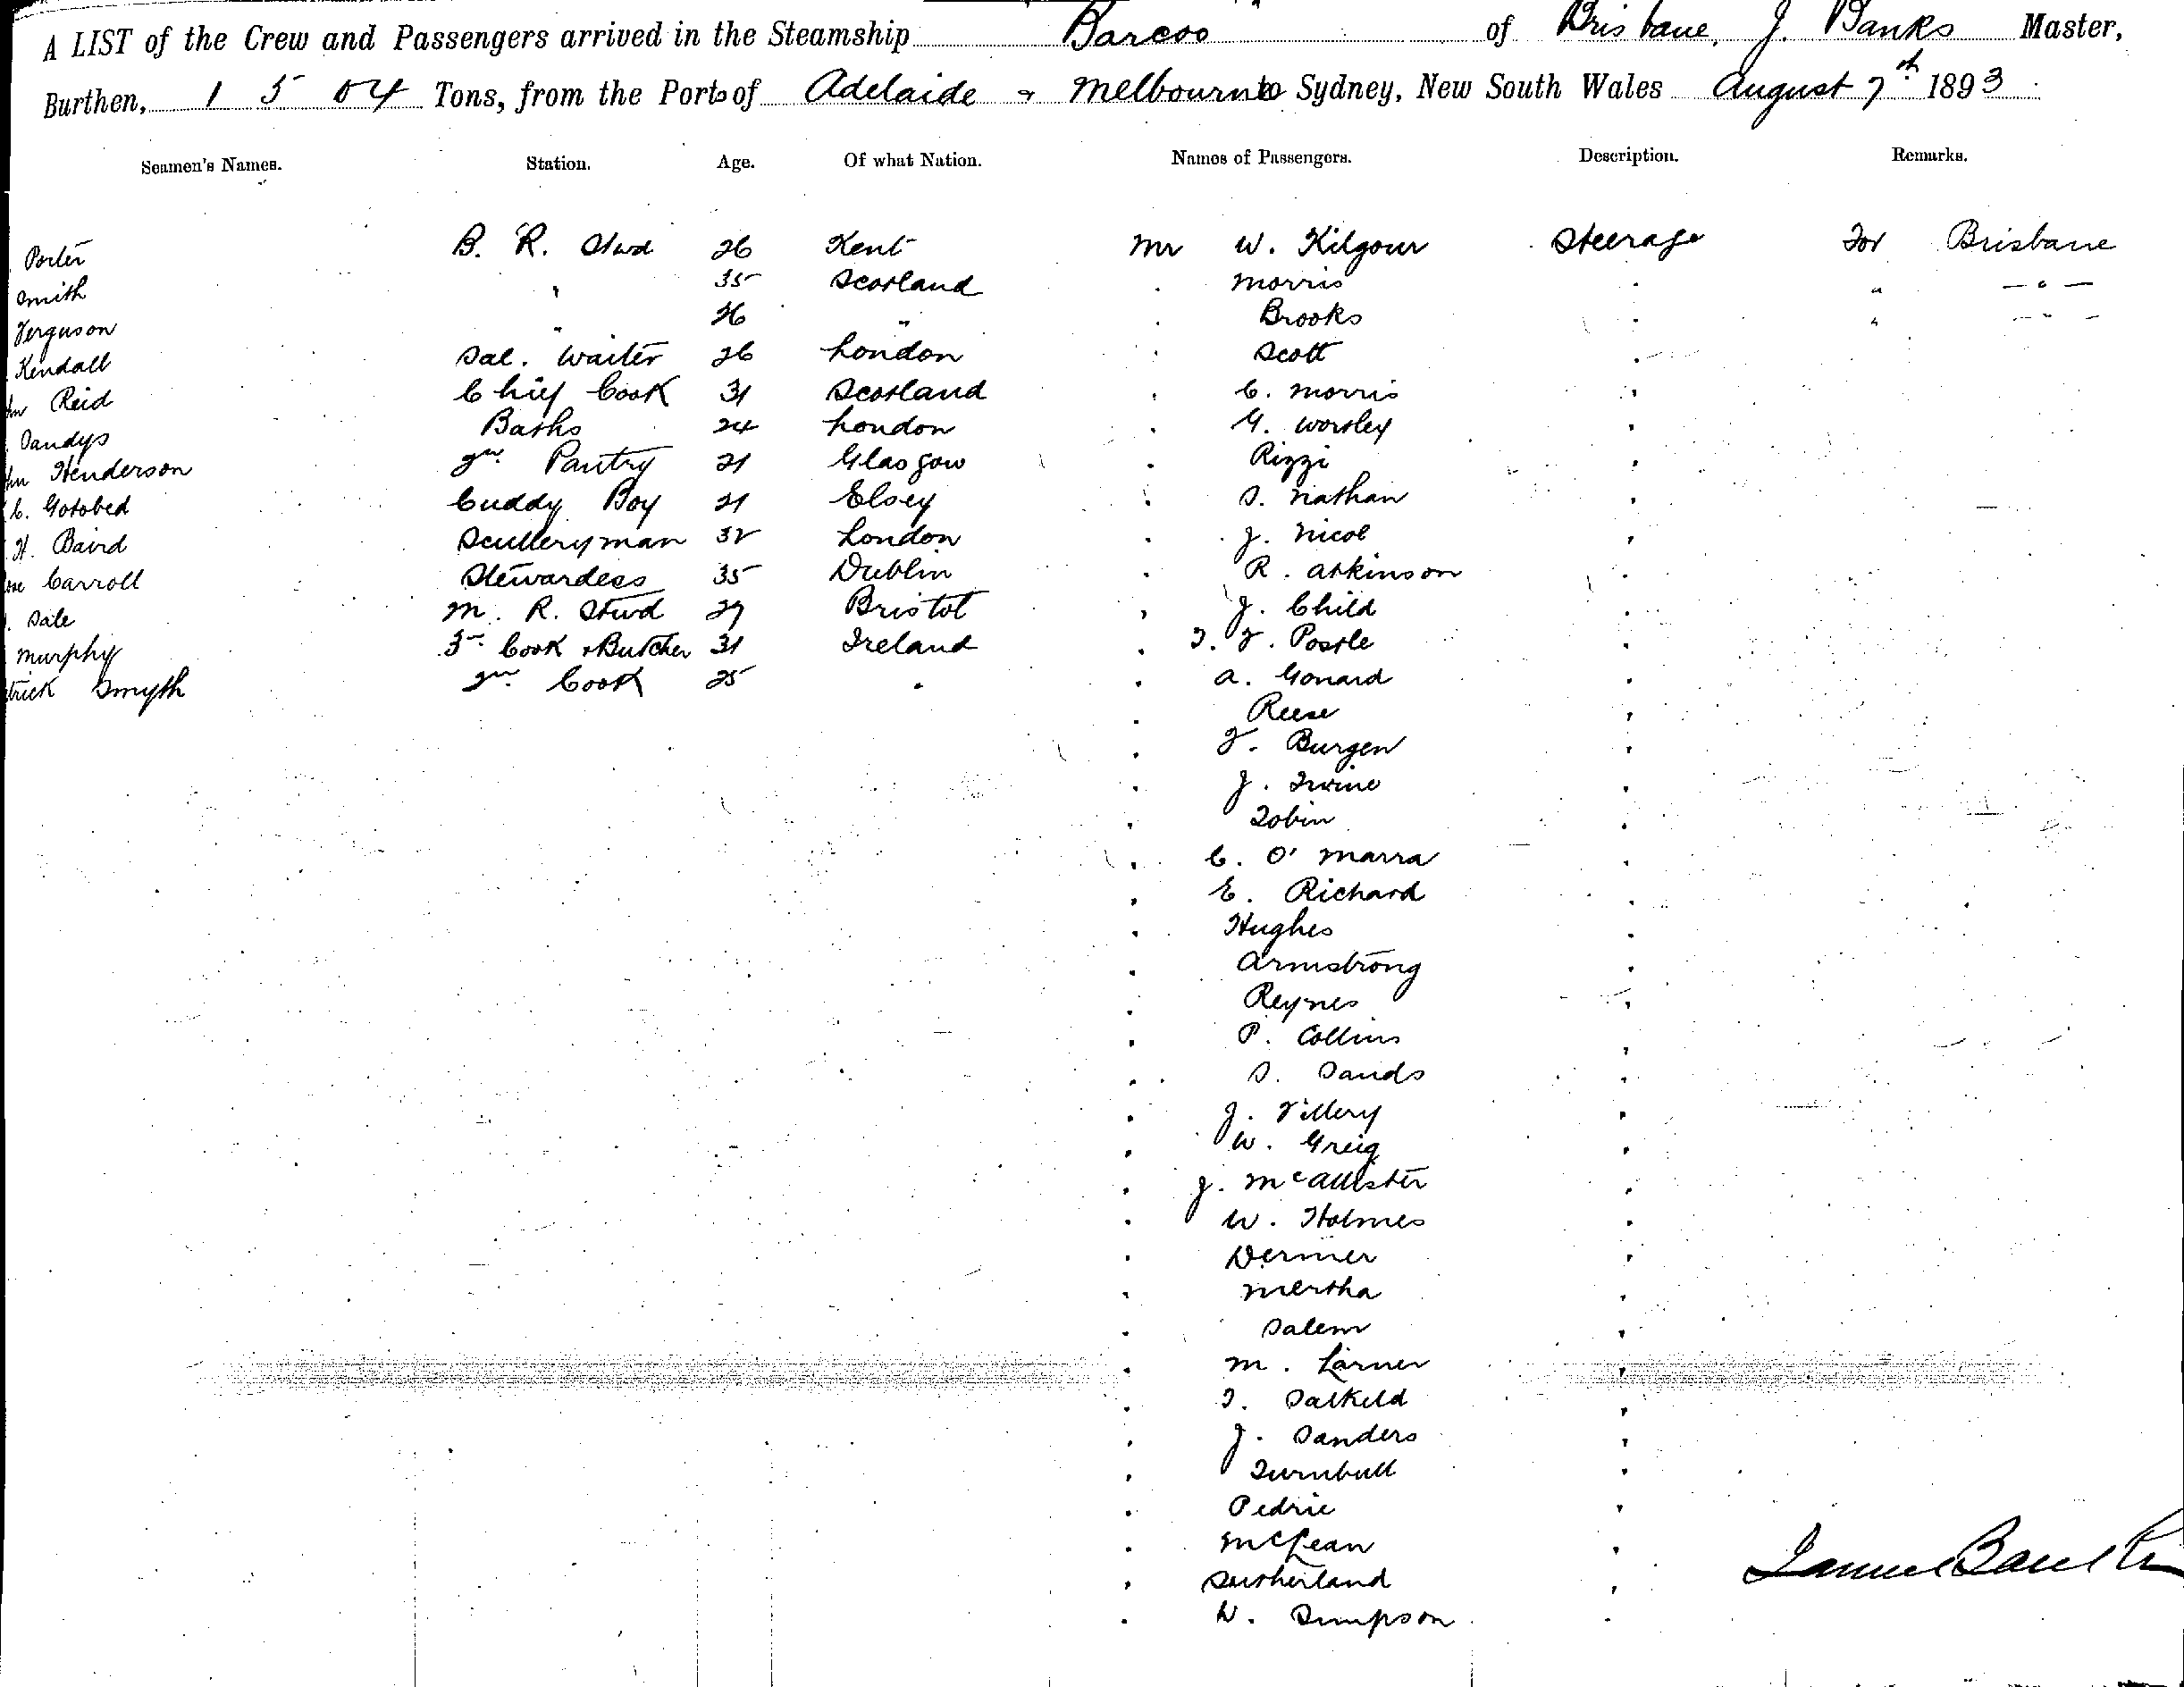 A LIST of the Crew and Passengers arrived in the Steamship Barcoo of Brisbane, J. Banks Master,
Burthen, 1 5 04 Tons, from the Ports of Adelaide & Melbourne to Sydney, New South Wales August 7th 1893
Seamen's Names. Station. Age. Of what Nation. Names of Passengers. Description. Remarks.
Porter B. R. Stwd 26 Kent Mr W. Kilgour Steerage For Brisbane
Smith " 35 Scotland . Morris . " — " —
Ferguson " 26 " . Brooks . " — " —
Kendall Sal. Waiter 26 London . Scott .
Reid Chief Cook 31 Scotland . C. Morris .
Sandys Baths 24 London . G. Worsley .
Henderson 2nd Pantry 21 Glasgow . Rizzi .
C. Gotobed Cuddy Boy 21 Elsey . S. Nathan .
H. Baird Sculleryman 32 London . J. Nicol .
Carroll Stewardess 35 Dublin . R. Atkinson .
Sale M. R. Stwd 29 Bristol . J. Child .
Murphy 3rd Cook & Butcher 31 Ireland . T. F. Postle .
trick Smyth 2nd Cook 25 " . A. Gonard .
. Reese .
. F. Burgen .
. J. Irvine .
. Tobin .
. C. O'Marra .
. E. Richard .
. Hughes .
. Armstrong .
. Reynes .
. P. Collins .
. S. Sands .
. J. Tillery .
. W. Greig .
. J. McAllister .
. W. Holmes .
. Dermer .
. Mertha .
. Salem .
. M. Larner .
. T. Salkeld .
. J. Sanders .
. Turnbull .
. Pedrie .
. McLean .
. Sutherland .
. W. Simpson .
James Banks